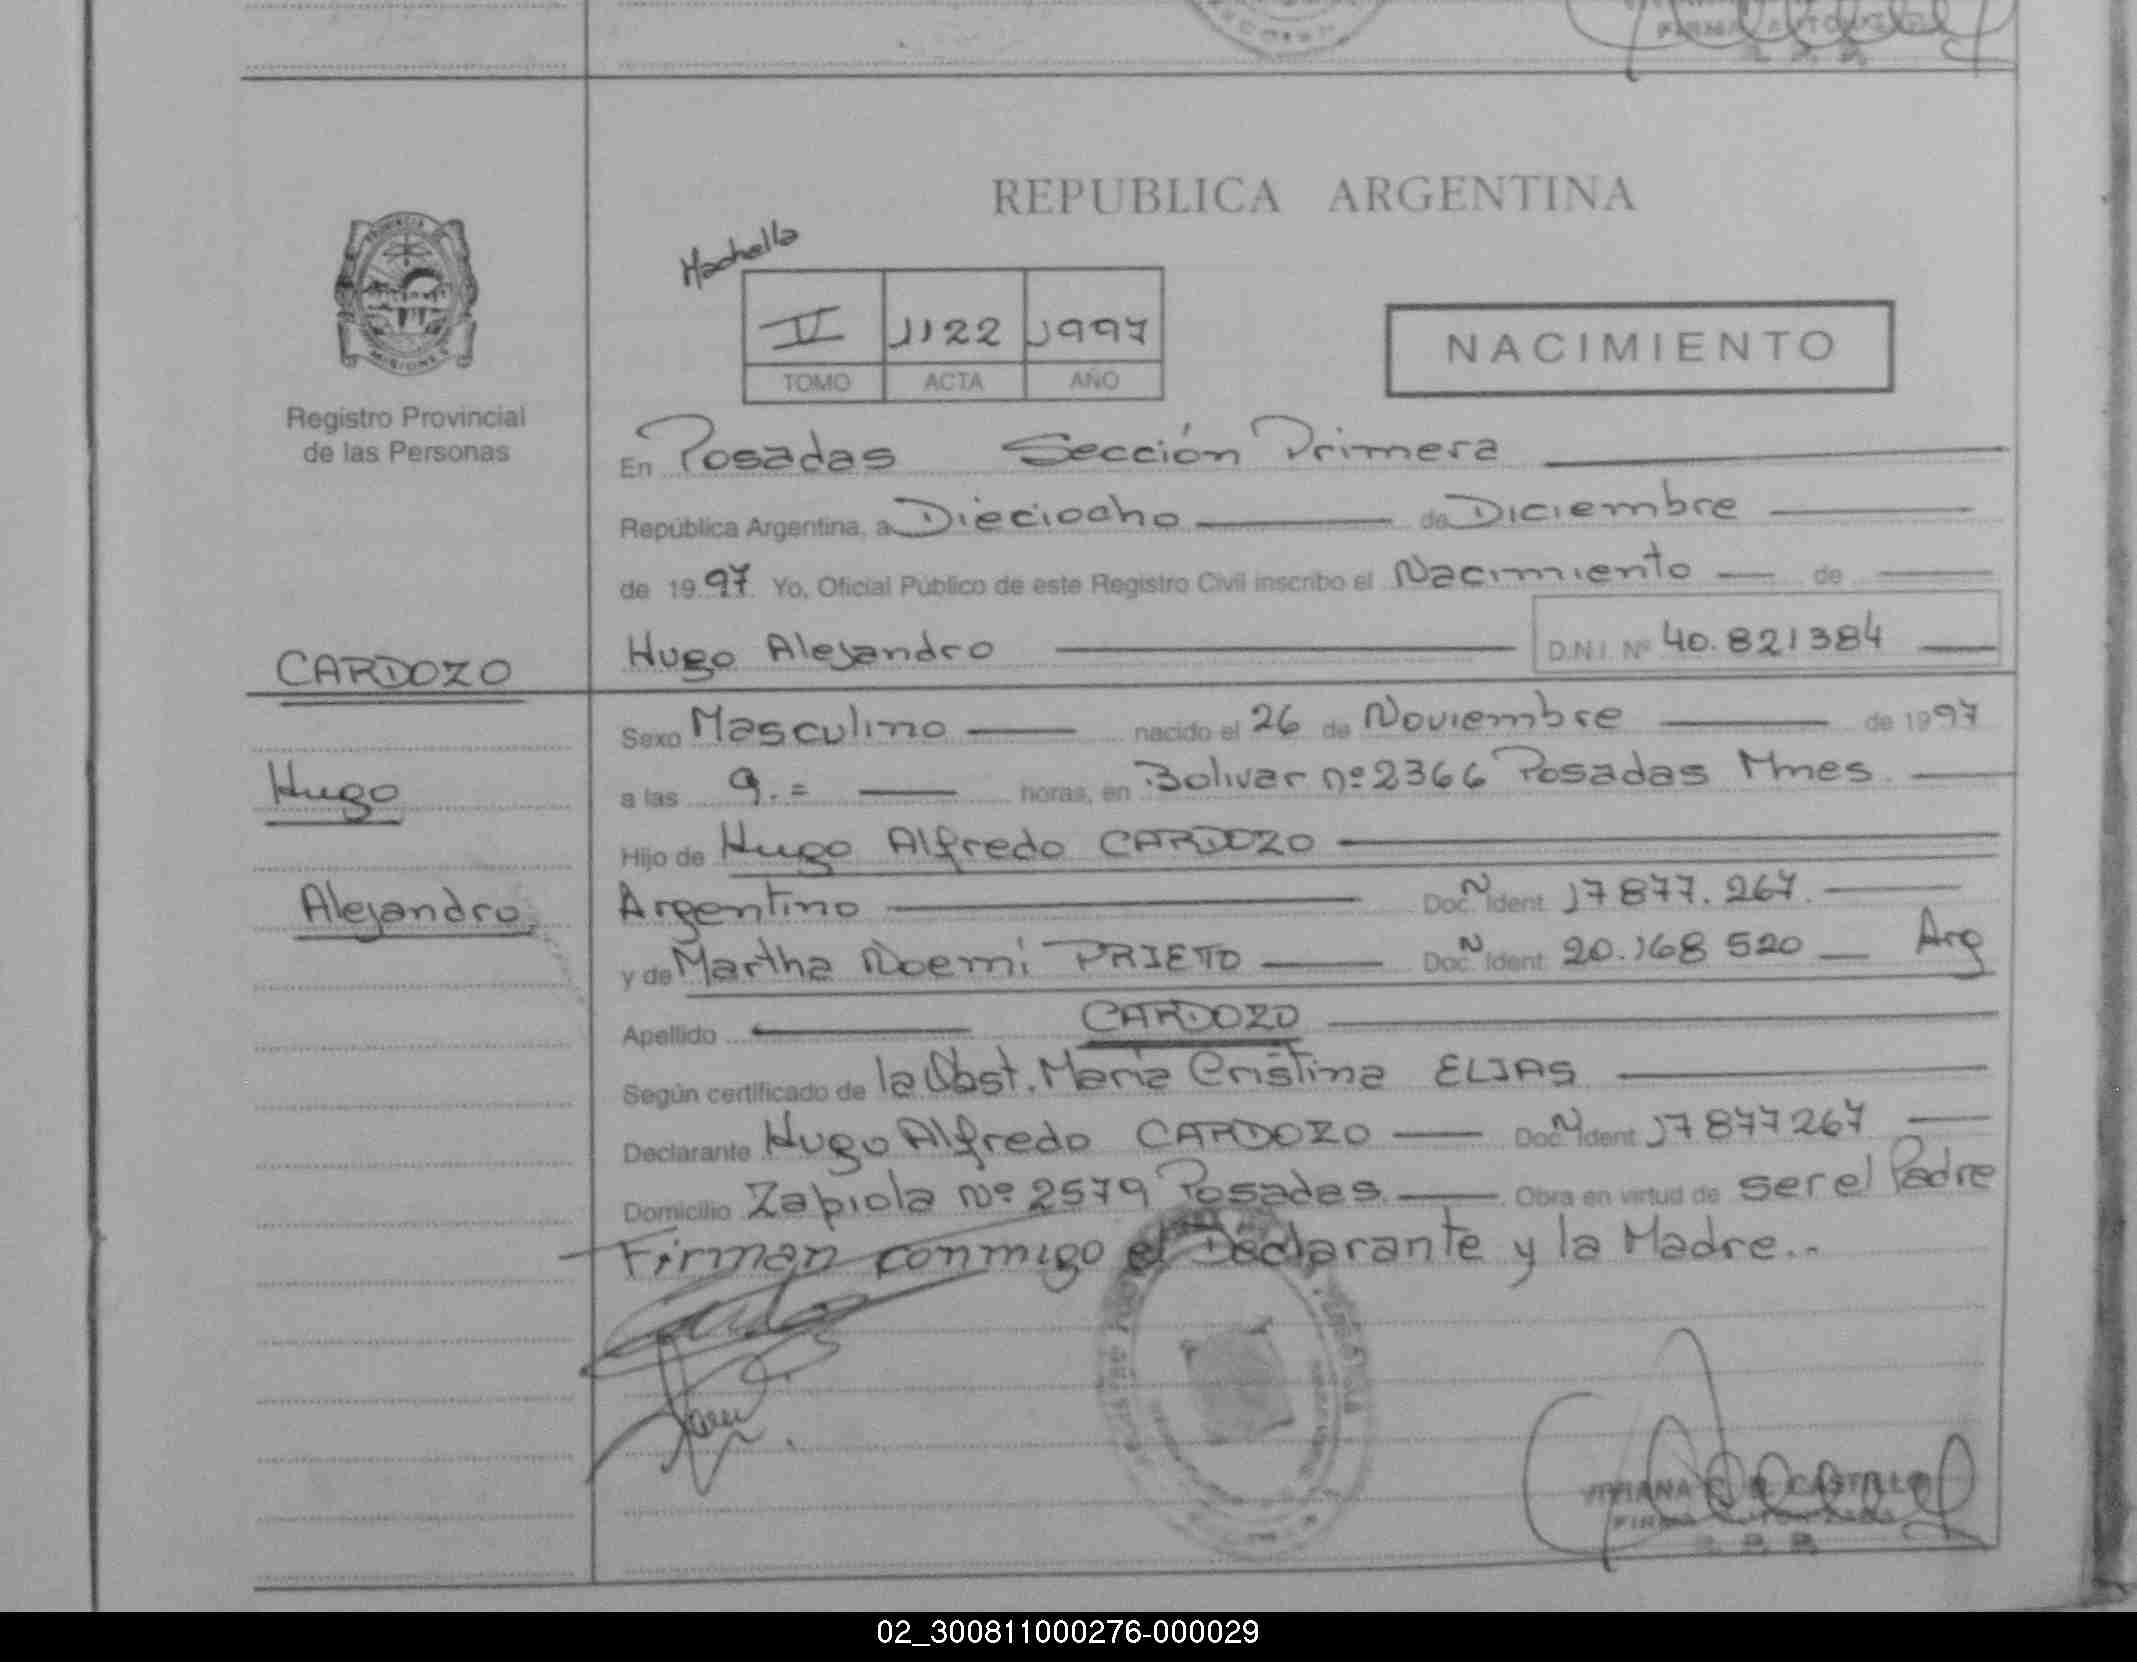 REPUBLICA ARGENTINA
PROVINCIA DE
MISIONES
Registro Provincial
de las Personas
IV 1122 1997
TOMO ACTA AÑO
NACIMIENTO
En Posadas Sección Primera
República Argentina, a Dieciocho de Diciembre
de 1997 Yo, Oficial Público de este Registro Civil inscribo el Nacimiento de
CARDOZO
Hugo Alejandro D.N.I. Nº 40.821384
Sexo Masculino nacido el 26 de Noviembre de 1997
Hugo
a las 9.= horas, en Bolivar nº 2366 Posadas Mnes.
Hijo de Hugo Alfredo CARDOZO
Alejandro
Argentino Doc. N Ident. 17877.267.
y de Martha Noemi PRIETO Doc. N Ident. 20.168520 Arg
Apellido CARDOZO
Según certificado de la Obst. María Cristina ELIAS
Declarante Hugo Alfredo CARDOZO Doc. N Ident. 17877267
Domicilio Zapiola Nº 2579 Posadas. Obra en virtud de ser el Padre
Firman conmigo el Declarante y la Madre..
CASTILLO
02_300811000276-000029